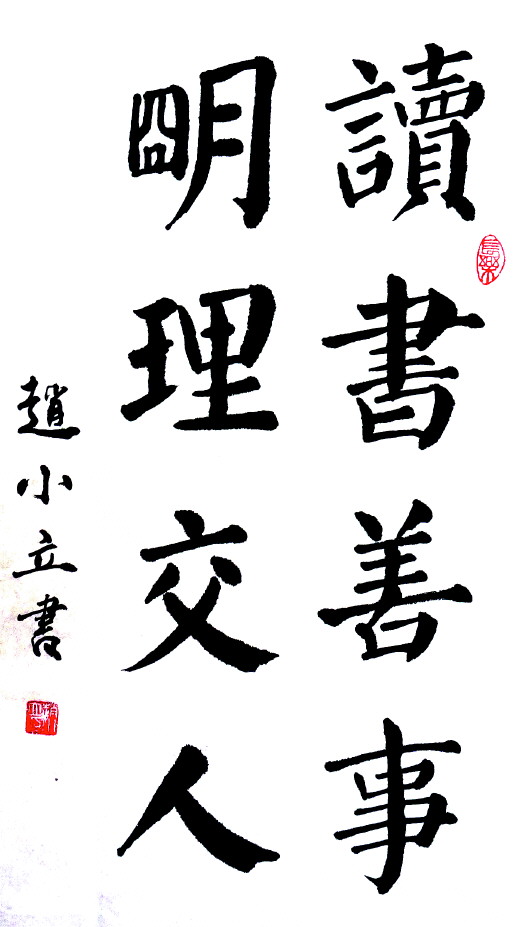 讀書善事
明理交人
趙小立書
長樂